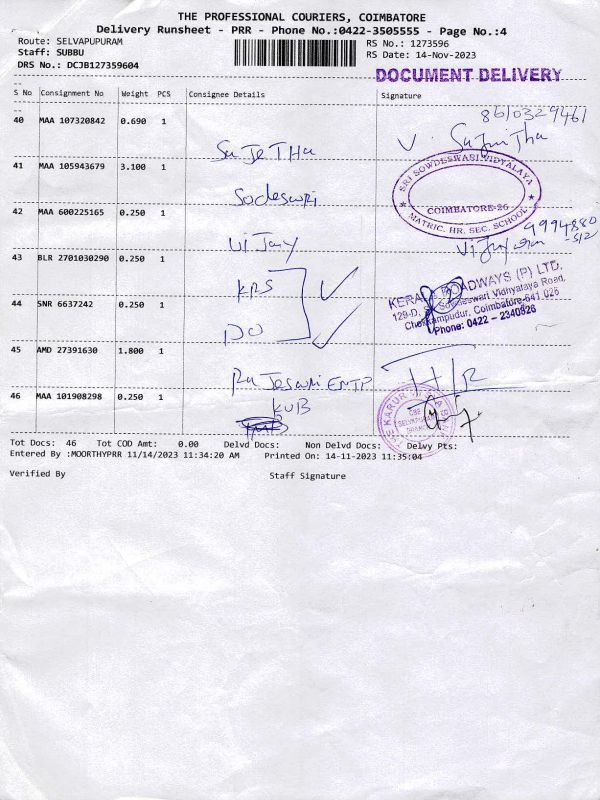 THE PROFESSIONAL COURIERS, COIMBATORE
Delivery Runsheet - PRR - Phone No.:0422-3505555 - Page No.:4
Route: SELVAPUPURAM
RS No.: 1273596
Staff: SUBBU
RS Date: 14-Nov-2023
DRS No.: DCJB127359604
DOCUMENT DELIVERY
S No Consignment No Weight PCS Consignee Details Signature
8610329461
40 MAA 107320842 0.690 1
SuJeTHa
V. Sujmitha
41 MAA 105943679 3.100 1
SRI SOWDESWARI VIDYALAYA
COIMBATORE-26
MATRIC. HR. SEC. SCHOOL
Sodeswri
42 MAA 600225165 0.250 1
9994880
-512
ViJay
43 BLR 2701030290 0.250 1
KRS
KERALA ROADWAYS (P) LTD.
129-D, Sowdeswari Vidhyalaya Road,
Chokkampudur, Coimbatore-641 026
Phone: 0422 - 2340826
44 SNR 6637242 0.250 1
DO
45 AMD 27391630 1.800 1
RaJeswri ENTP
46 MAA 101908298 0.250 1
KVB
KARUR
SELVAPURAM
Tot Docs: 46 Tot COD Amt: 0.00 Delvd Docs: Non Delvd Docs: Delvy Pts:
Entered By :MOORTHYPRR 11/14/2023 11:34:20 AM Printed On: 14-11-2023 11:35:04
Verified By Staff Signature